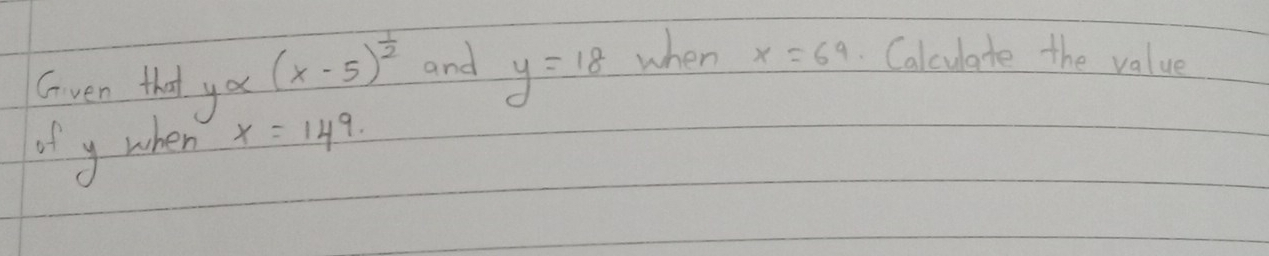 Given that y ∝ (x - 5)^½ and y = 18 when x = 69. Calculate the value
of y when x = 149.